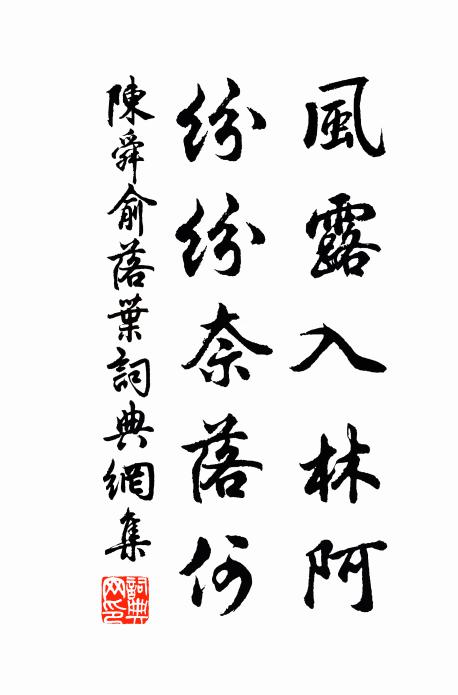 風露入林阿
紛紛奈落何
陳舜俞落葉詞典網集
詞典網印